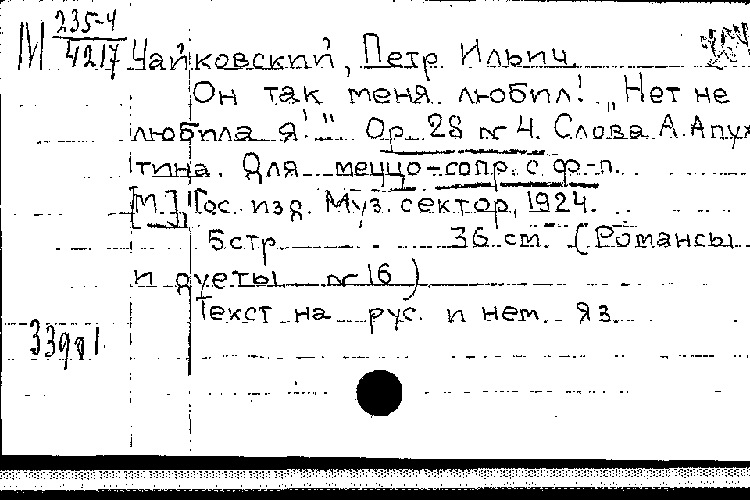 М 235-4
4217
Чайковский, Петр Ильич
Он так меня любил! „Нет не
любила я!" Op. 28 № 4. Слова А. Апух
тина. Для меццо-сопр. с ф-п.
[М.], Гос. изд. Муз. сектор, 1924.
5 стр 36 cm. (Романсы
и дуеты № 16)
Текст на рус. и нем. яз.